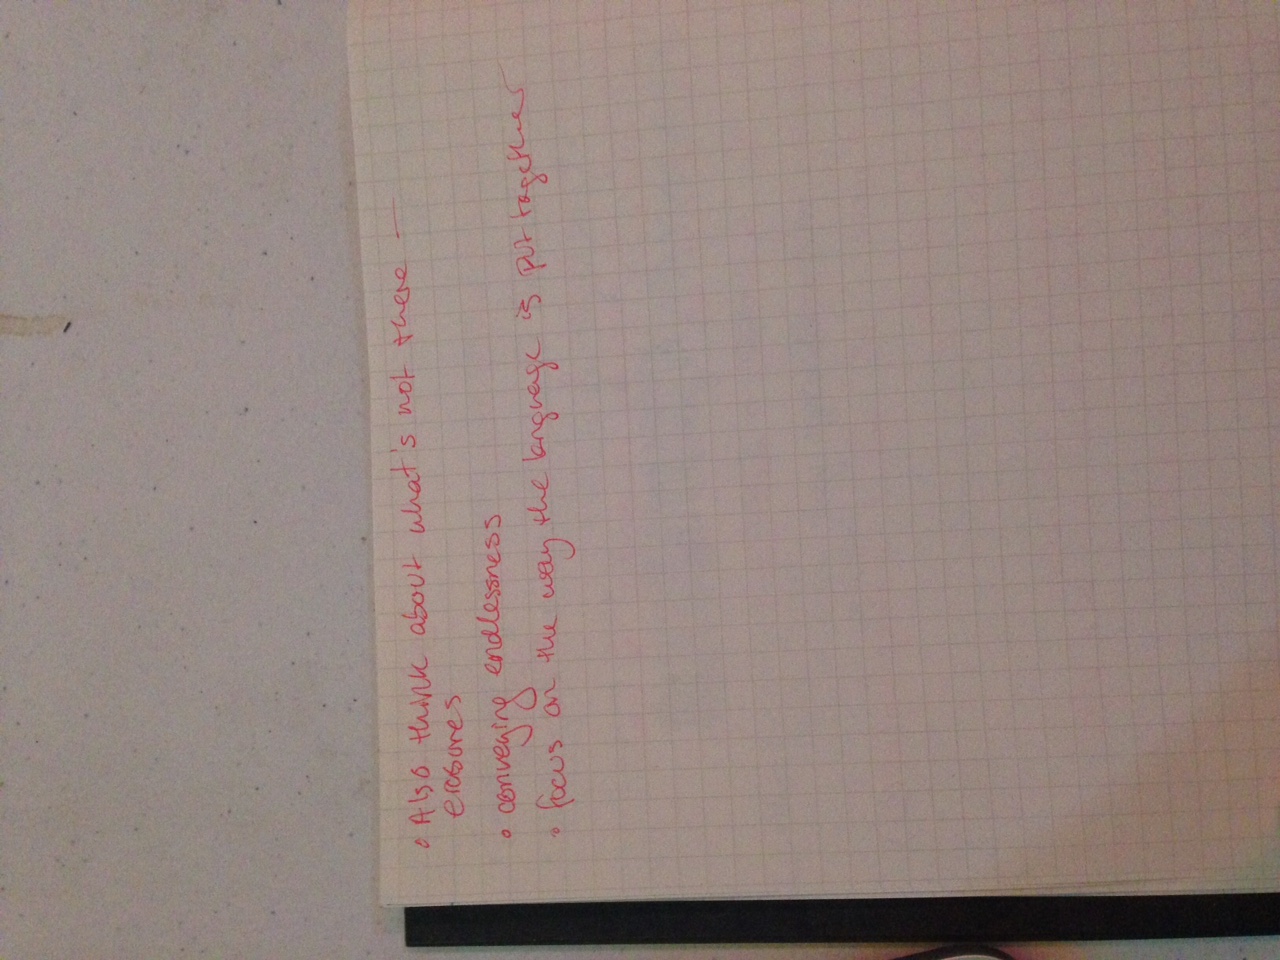 ◦ Also think about what's not there —
erasures
◦ conveying endlessness
◦ focus on the way the language is put together